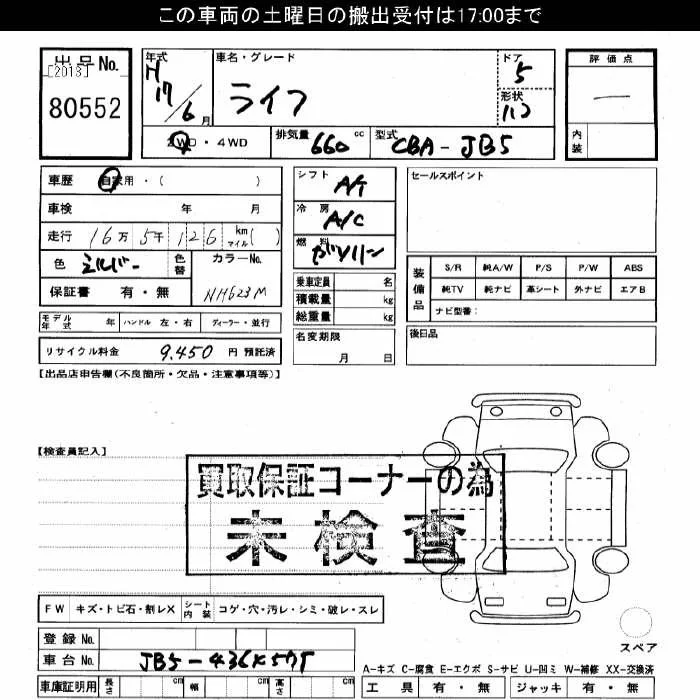 この車両の土曜日の搬出受付は17:00まで
出品No.
[2013]
80552
年式
H
17/6月
車名・グレード
ライフ
ドア
5
形状
ハコ
評価点
―
内装
2WD・4WD
排気量 660 cc
型式 CBA-JB5
車歴 自家用・( )
車検 年 月
走行 16万 5千 126 km マイル( )
色 シルバー
色替
カラーNo.
NH623M
保証書 有・無
シフト A/T
冷房 A/C
燃料 ガソリン
乗車定員 名
積載量 kg
総重量 kg
セールスポイント
装備品
S/R 純A/W P/S P/W ABS
純TV 純ナビ 革シート 外ナビ エアB
ナビ型番:
モデル年式 年 ハンドル 左・右 ディーラー・並行
名変期限
月 日
後日品
リサイクル料金 9,450 円 預託済
【出品店申告欄(不良箇所・欠品・注意事項等)】
【検査員記入】
買取保証コーナーの為
未検査
FW キズ・トビ石・割レX シート内装 コゲ・穴・汚レ・シミ・破レ・スレ
スペア
登録No.
車台No.
車庫証明用 長さ cm 幅 cm 高さ cm
A-キズ C-腐食 E-エクボ S-サビ U-凹ミ W-補修 XX-交換済
工具 有・無 ジャッキ 有・無